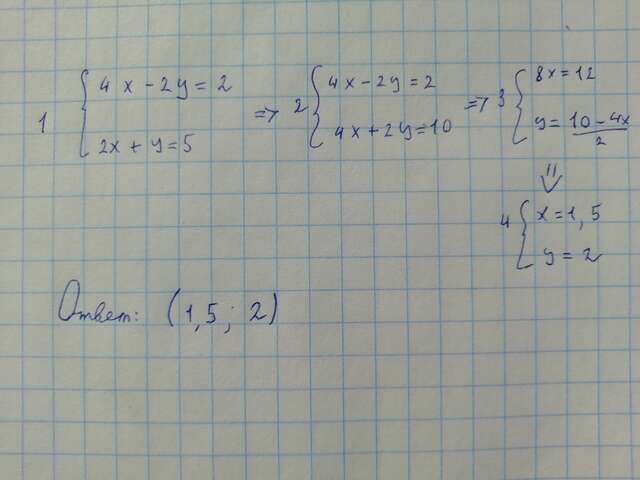 1 { 4x - 2y = 2
2x + y = 5
=> 2 { 4x - 2y = 2
4x + 2y = 10
=> 3 { 8x = 12
y = (10 - 4x)/2
=>
4 { x = 1,5
y = 2
Ответ: (1,5; 2)